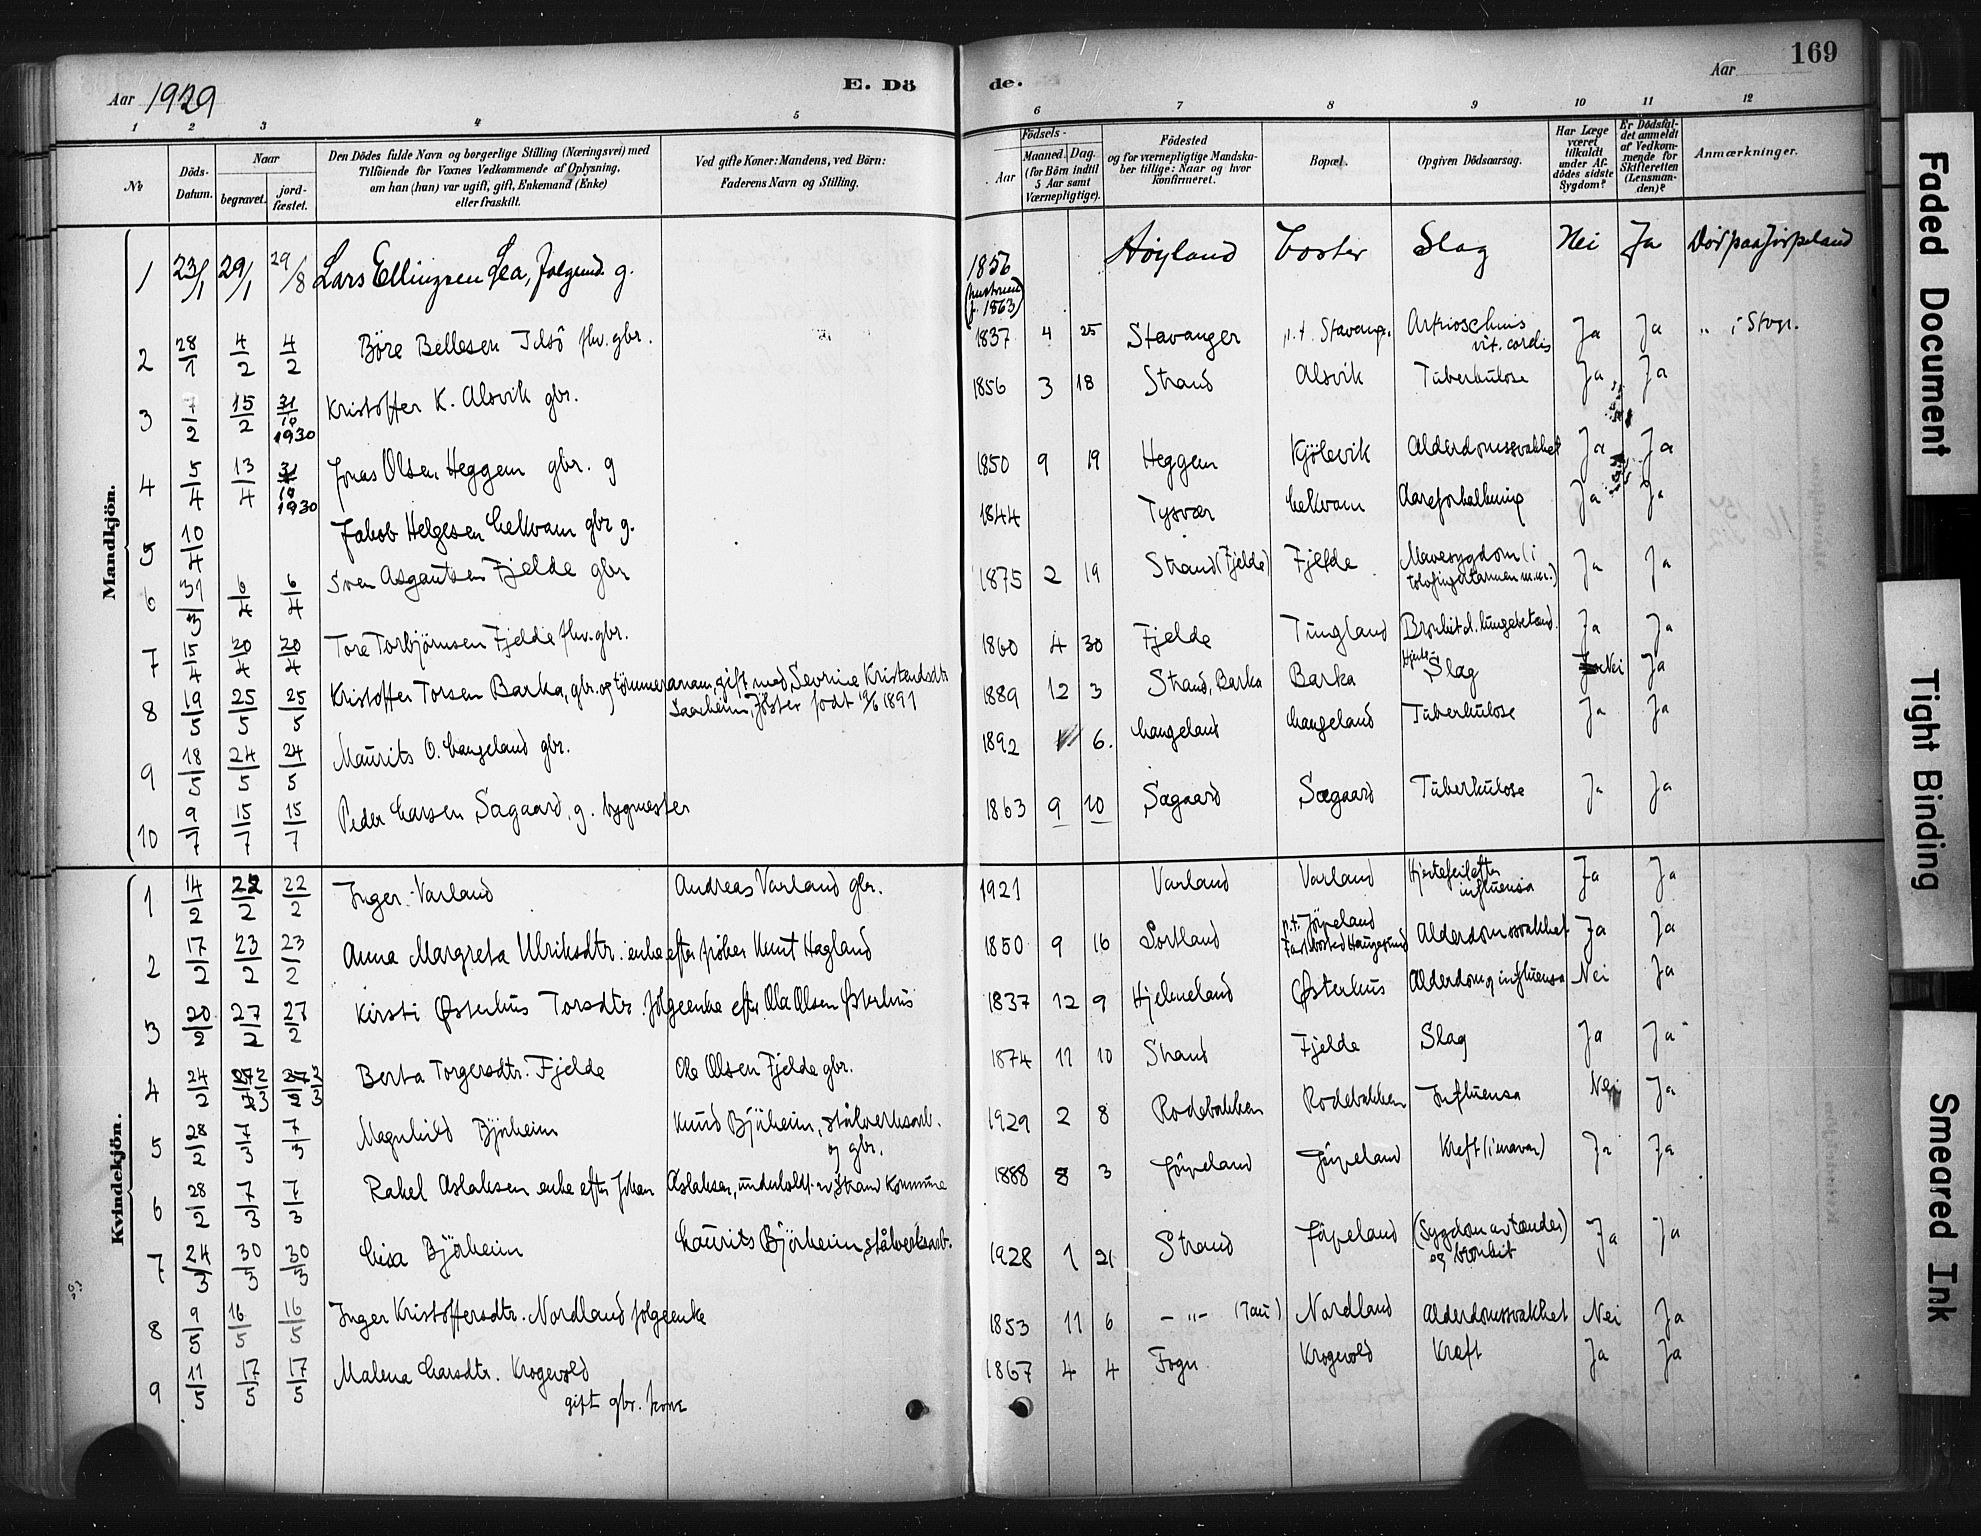 Aar 1929
E. Dö
de.
Aar
169
1 2 3 4 5 6 7 8 9 10 11 12
№
Döds-Datum.
Naar
begravet.
jord-fæstet.
Den Dödes fulde Navn og borgerlige Stilling (Næringsvei) med
Tilföiende for Voxnes Vedkommende af Oplysning,
om han (hun) var ugift, gift, Enkemand (Enke)
eller fraskilt.
Ved gifte Koner: Mandens, ved Börn:
Faderens Navn og Stilling.
Födsels-
Aar
Maaned. Dag.
(for Börn indtil
5 Aar samt
Værnepligtige).
Födested
og for værnepligtige Mandska-
ber tillige: Naar og hvor
konfirmeret.
Bopæl.
Opgiven Dödsaarsag.
Har Læge
været
tilkaldt
under Af-
dödes sidste
Sygdom?
Er Dödsfal-
det anmeldt
af Vedkom-
mende for
Skifteretten
(Lensman-
den)?
Anmærkninger.
Mandkjön.
1 23/1 29/1 29/8 Lars Ellingsen Lea, g. 1856 Høyland Slag Nei Ja Död paa Jörpeland
f. 1863)
2 28/1 4/2 4/2 Böre Bellesen Idsö fhv. gbr. 1837 4 25 Stavanger Ja Ja " i Stvgr.
vit. cordis
3 7/2 15/2 31/10 1930 Kristoffer K. Alsvik gbr. 1856 3 18 Strand Alsvik Tuberkulose Ja Ja
4 5/4 13/4 31/10 1930 Jonas Olsen Heggem gbr. g 1850 9 19 Heggem Kjölevik Alderdomssvakhet Ja Ja
5 10/4 Jakob Helgesen Lekvam gbr g. 1844 Tysvær Lekvam Aareforkalkning Ja Ja
6 31/3 6/4 6/4 Sven Asgautsen Fjelde gbr 1875 2 19 Strand (Fjelde) Fjelde Mavesygdom (i
tolvfingertarmen m.m.) Ja Ja
7 15/4 20/4 20/4 Tore Torbjörnsen Fjelde fhv. gbr. 1860 4 30 Fjelde Tungland Bronkit d. lungebetænd. Ja Ja
8 19/5 25/5 25/5 Kristoffer Torsen Barka, gbr. og tömmermann, gift med Sevrine Kristensdtr
födt 1891 1889 12 3 Strand, Barka Barka Hjerte-Slag Nei Ja
9 18/5 24/5 24/5 Maurits O. Langeland gbr. 1892 6. Langeland Langeland Tuberkulose Ja Ja
10 9/7 15/7 15/7 Peder Larsen Sagaard, g. bygmester 1863 9 10 Sagaard Sagaard Tuberkulose Ja Ja
Kvindekjön.
1 14/2 22/2 22/2 Inger Varland Andreas Varland gbr. 1921 Varland Varland Hjertefeil efter
influensa Ja Ja
2 17/2 23/2 23/2 Anna Margreta Ulriksdtr. enke efter fisker Knut Hagland 1850 9 16 Sortland p.t. Jörpeland
Fast bosted Haugesund Alderdomssvakhet Ja Ja
3 20/2 27/2 27/2 Kirsti Østerhus Torsdtr. folgeenke efter Ola Olsen Østerhus 1837 12 9 Hjelmeland Østerhus Alderdom og influensa Nei Ja
4 24/2 2/3 2/3 Berta Torgersdtr. Fjelde Ole Olsen Fjelde gbr. 1874 11 10 Strand Fjelde Slag Ja Ja
5 28/2 7/3 7/3 Magnhild Björheim Knud Björheim, stålverksarb.
og gbr. 1929 2 8 Rodebakken Rodebakken Influensa Nei Ja
6 28/2 7/3 7/3 Rakel Aslaksen enke efter Johan Aslaksen, underholdt av Strand Kommune 1888 8 3 Jörpeland Jörpeland Kreft (i maven) Ja Ja
7 24/3 30/3 30/3 Lisa Björheim Laurits Björheim, stålverksarb. 1928 1 21 Strand Jörpeland (Sygdom av tænder)
og bronkit Ja Ja
8 9/5 16/5 16/5 Inger Kristoffersdtr. Nordland folgeenke 1853 11 6 -"- (Tau) Nordland Alderdomssvakhet Nei Ja
9 11/5 17/5 17/5 Malena Larsdtr. Krogevold
gift gbr. kone 1867 4 4 Fogn Krogevold Kræft Ja Ja
Faded Document
Tight Binding
Smeared Ink